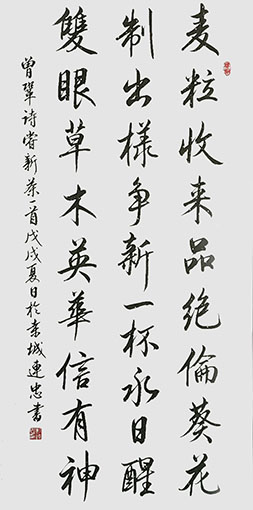 麦粒收来品绝倫葵花
制出樣争新一杯永日醒
雙眼草木英華信有神
曾鞏诗嘗新茶一首戊戌夏日於素城连忠書